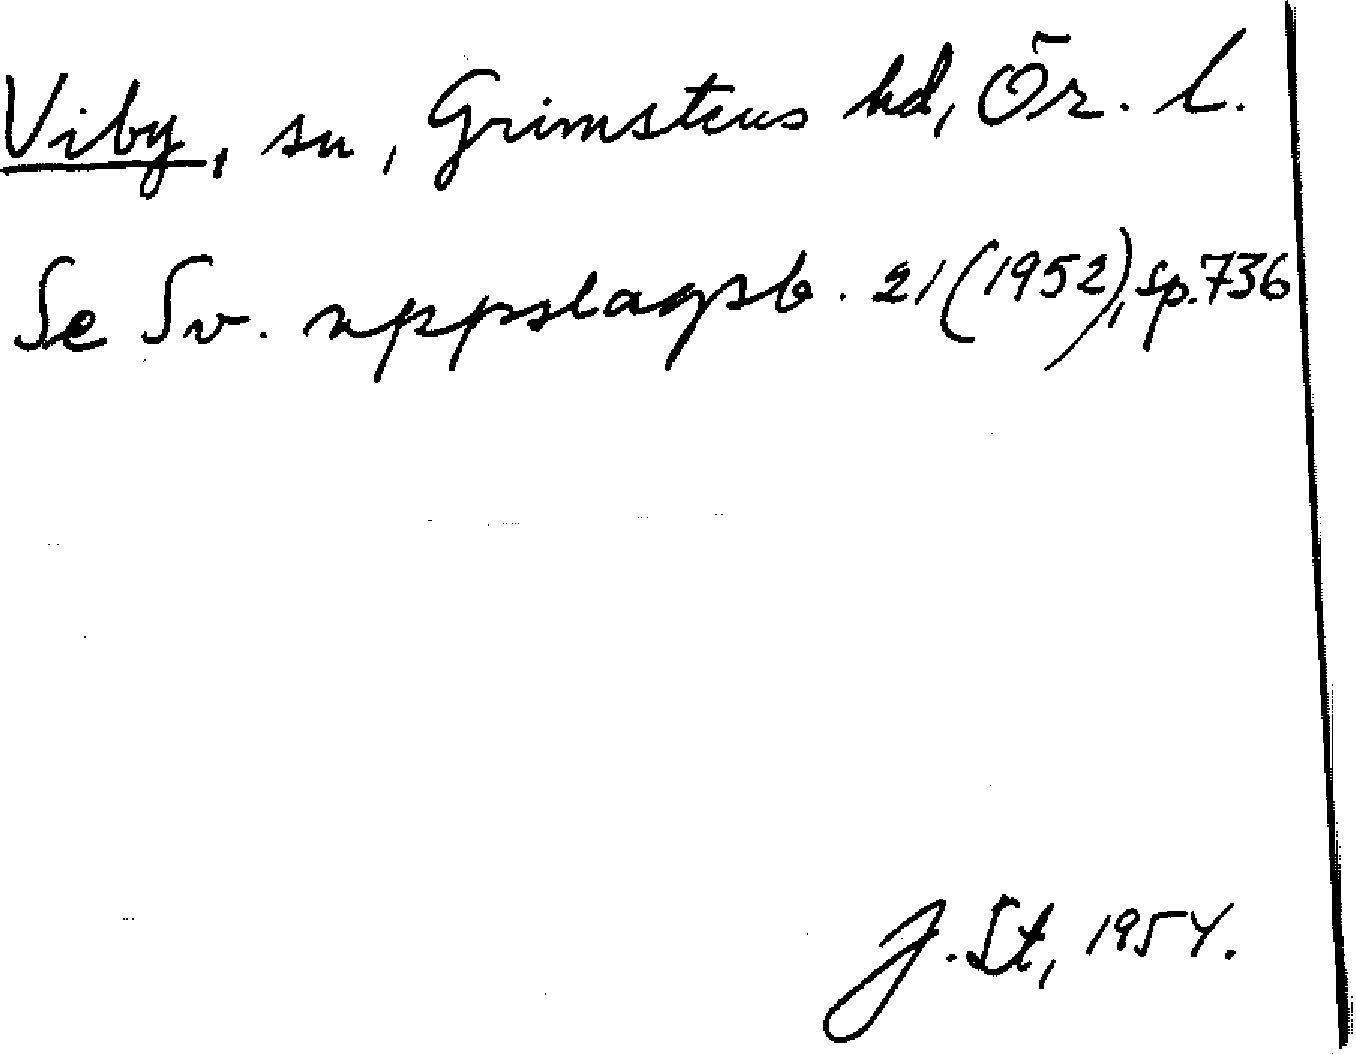 Viby, sn, Grimstens hd, Ör. l.
Se Sv. uppslagsb. 21 (1952), sp. 736
J. St, 1954.